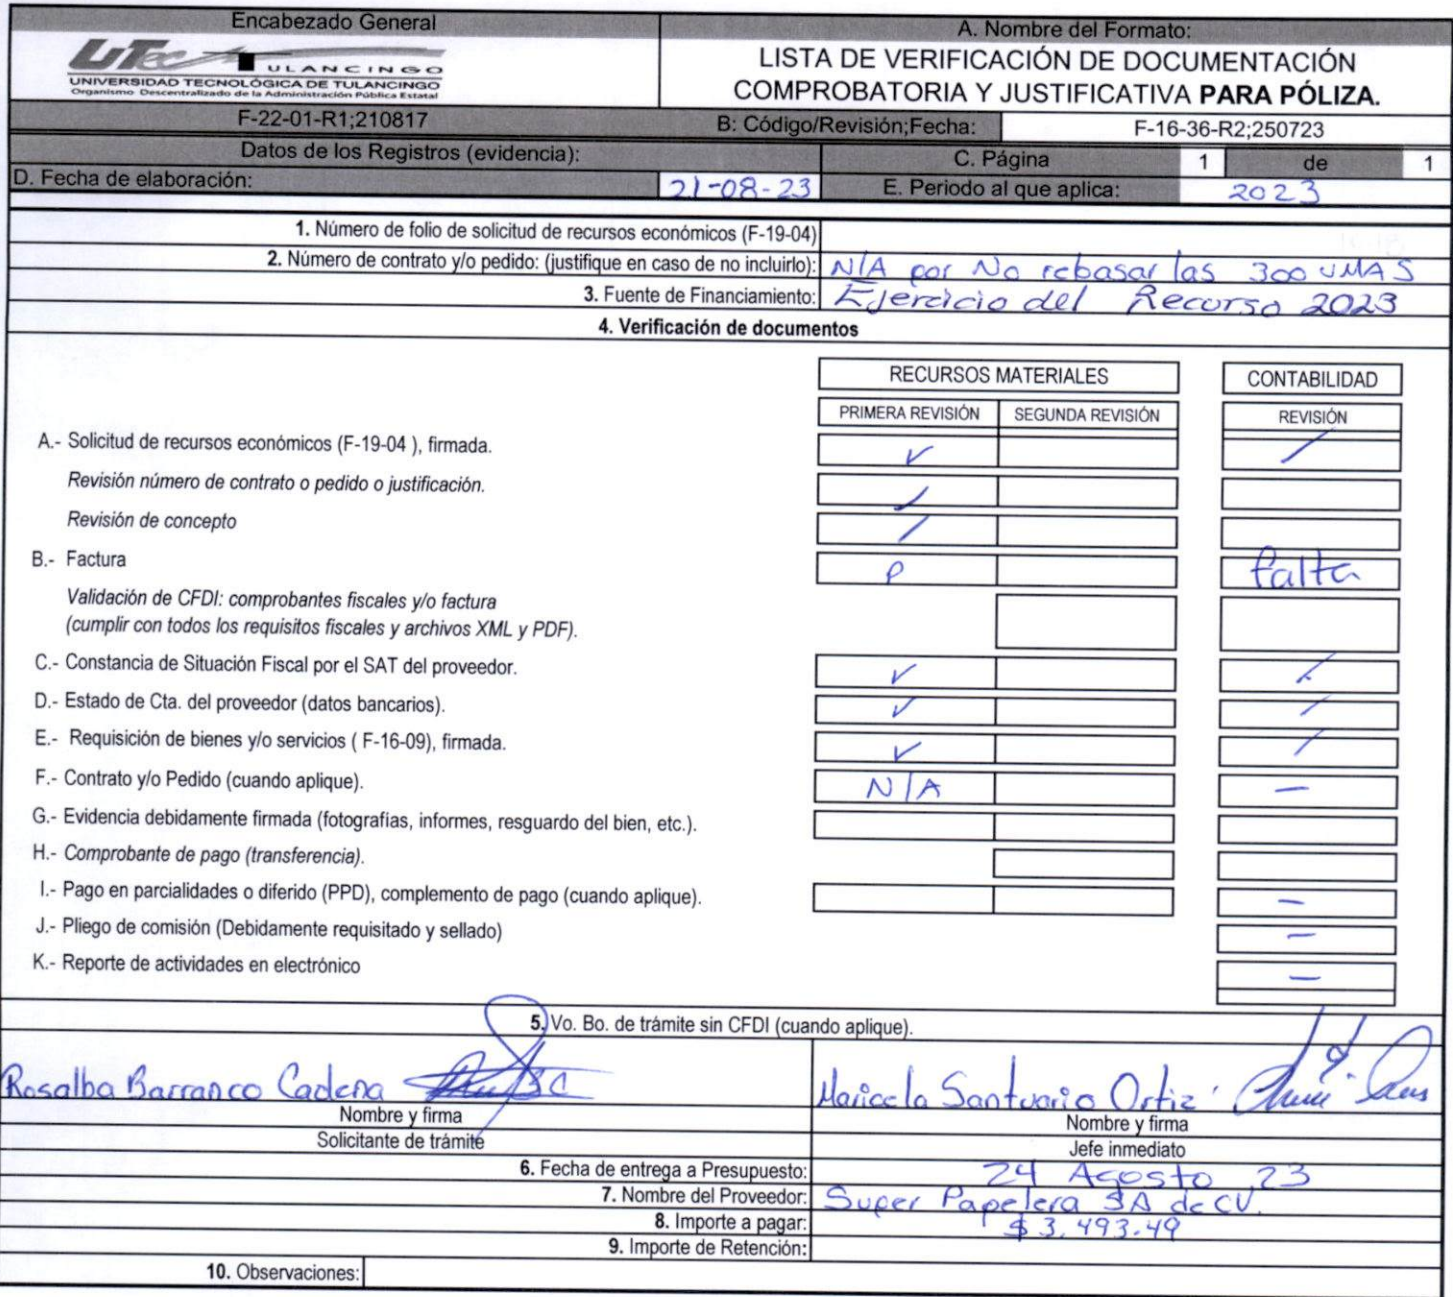 Encabezado General
A. Nombre del Formato:
UTec TULANCINGO
UNIVERSIDAD TECNOLÓGICA DE TULANCINGO
Organismo Descentralizado de la Administración Pública Estatal
LISTA DE VERIFICACIÓN DE DOCUMENTACIÓN
COMPROBATORIA Y JUSTIFICATIVA PARA PÓLIZA.
F-22-01-R1;210817
B: Código/Revisión;Fecha:
F-16-36-R2;250723
Datos de los Registros (evidencia):
C. Página 1 de 1
D. Fecha de elaboración: 21-08-23
E. Periodo al que aplica: 2023
1. Número de folio de solicitud de recursos económicos (F-19-04)
2. Número de contrato y/o pedido: (justifique en caso de no incluirlo): N/A por No rebasar las 300 UMAS
3. Fuente de Financiamiento: Ejercicio del Recurso 2023
4. Verificación de documentos
RECURSOS MATERIALES CONTABILIDAD
PRIMERA REVISIÓN SEGUNDA REVISIÓN REVISIÓN
A.- Solicitud de recursos económicos (F-19-04 ), firmada. ✓ /
Revisión número de contrato o pedido o justificación. /
Revisión de concepto /
B.- Factura P falta
Validación de CFDI: comprobantes fiscales y/o factura
(cumplir con todos los requisitos fiscales y archivos XML y PDF).
C.- Constancia de Situación Fiscal por el SAT del proveedor. ✓ /
D.- Estado de Cta. del proveedor (datos bancarios). ✓ /
E.- Requisición de bienes y/o servicios ( F-16-09), firmada. ✓ /
F.- Contrato y/o Pedido (cuando aplique). N/A —
G.- Evidencia debidamente firmada (fotografías, informes, resguardo del bien, etc.).
H.- Comprobante de pago (transferencia).
I.- Pago en parcialidades o diferido (PPD), complemento de pago (cuando aplique). —
J.- Pliego de comisión (Debidamente requisitado y sellado) —
K.- Reporte de actividades en electrónico —
5. Vo. Bo. de trámite sin CFDI (cuando aplique).
Rosalba Barranco Cadena
Maricela Santuario Ortiz
Nombre y firma
Nombre y firma
Solicitante de trámite
Jefe inmediato
6. Fecha de entrega a Presupuesto: 24 Agosto 23
7. Nombre del Proveedor: Super Papelera SA de CV.
8. Importe a pagar: $3,493.49
9. Importe de Retención:
10. Observaciones: